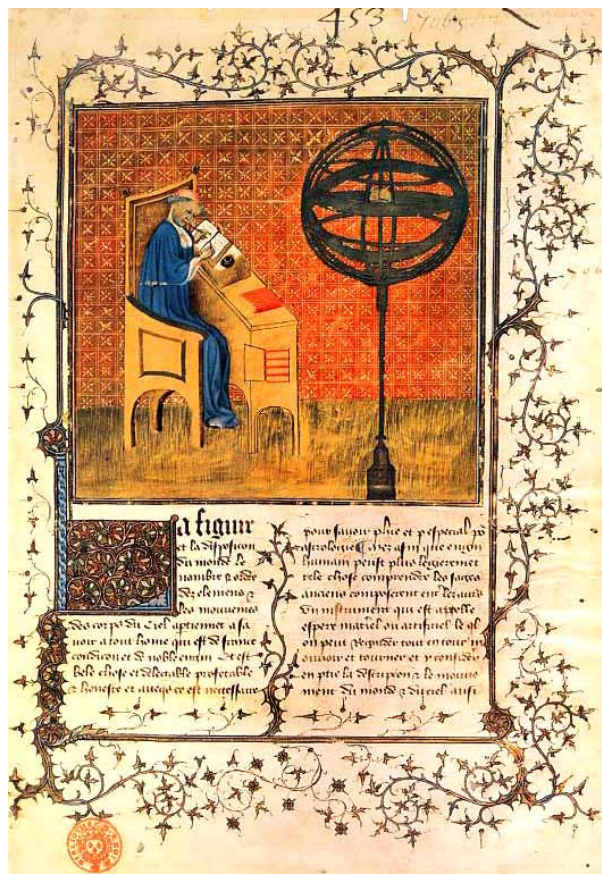 453
7065
a figure
et la disposicion
du monde le
nombre & ordre
des elemens &
les mouvemens
des corps du ciel aptiennet a sa
voir a tout home qui est de france
condicion et de noble engin Et est
bele chose et delectable profetable
& honeste et avecqs ce est necessaire
pour savoir phie et p especial po
astrologie Cher afin que engin
humain peust plus legierement
tele chose comprendre les sages
anciens composerent entre leurs
un instrument qui est appelle
espere materiel ou artificiel le ql
on peut regarder tout entour
mouvoir et tourner et y consider
en ptie la descripcion & le mouve
ment du monde & du ciel aussi